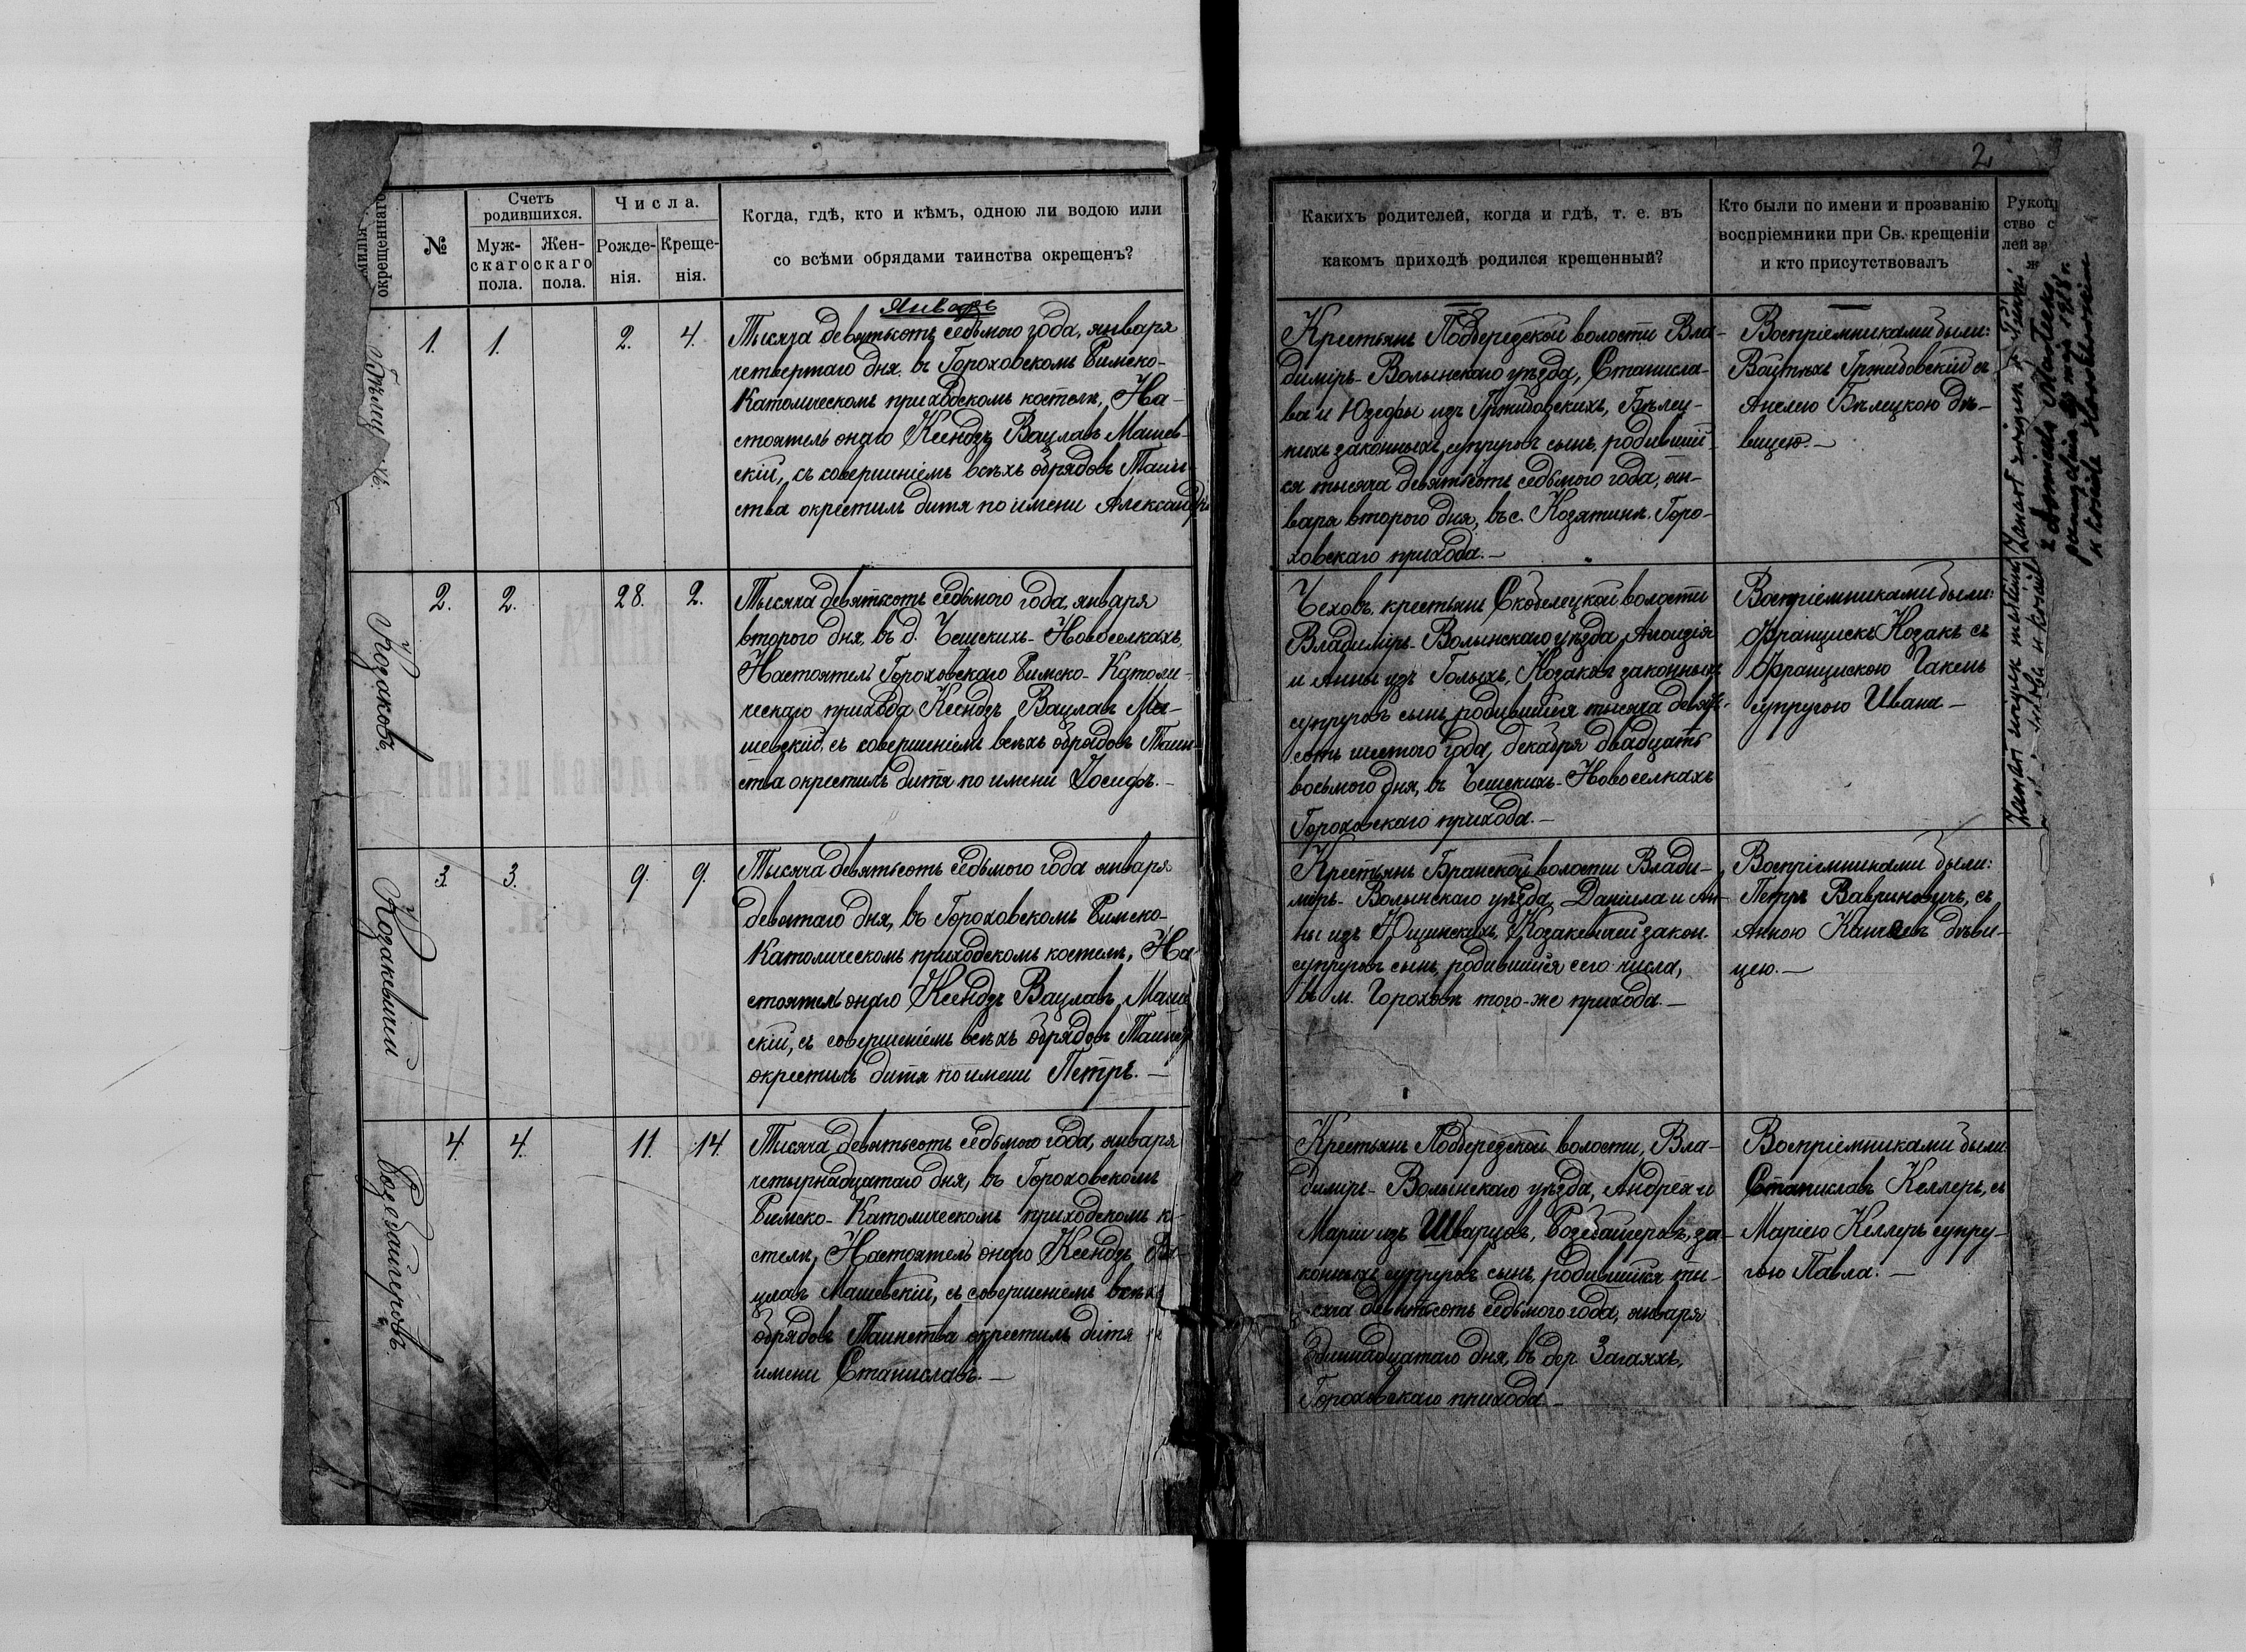 2
милія
окрещеннаго
№
Счетъ
родившихся.
Муж-
скаго
пола.
Жен-
скаго
пола.
Числа.
Рожде-
нія.
Креще-
нія.
Когда, гдѣ, кто и кѣмъ, одною ли водою или
со всѣми обрядами таинства окрещенъ?
Какихъ родителей, когда и гдѣ, т. е. въ
какомъ приходѣ родился крещенный?
Кто были по имени и прозванію
воспріемники при Св. крещеніи
и кто присутствовалъ
Рукоп
ство с
лей за
ж
Январь
1. 1. 2. 4.
Тысяча девятьсотъ седьмого года, января
четвертаго дня въ Гороховскомъ Римско-
Католическомъ приходскомъ костелѣ, На-
стоятель онаго Ксендзъ Вацлавъ Машев-
скій, съ совершеніемъ всѣхъ обрядовъ Таин-
ства окрестилъ дитя по имени Александръ
Крестьянъ Подберезской волости Вла-
димiръ-Волынскаго уѣзда, Станисла-
ва и Юзефы изъ Гржибовскихъ, Бѣлец-
кихъ законныхъ супруговъ сынъ, родившій-
ся тысяча девятьсотъ седьмого года, ян-
варя второго дня, въ с. Козятинѣ Горо-
ховскаго прихода.—
Воспріемниками были:
Войтѣхъ Гржибовскій съ
Анелею Бѣлецкою дѣ-
вицею.—
Козаковъ
2. 2. 28. 2.
Тысяча девятьсотъ седьмого года, января
второго дня, въ д. Чешскихъ-Новоселкахъ,
Настоятель Гороховскаго Римско-Католи-
ческаго прихода Ксендзъ Вацлавъ Ма-
шевскій, съ совершеніемъ всѣхъ обрядовъ Таин-
ства окрестилъ дитя по имени Іосифъ.—
Чеховъ, крестьянъ Скобелецкой волости
Владимiръ-Волынскаго уѣзда, Алоизія
и Анны изъ Голыхъ, Козаковъ законныхъ
супруговъ сынъ, родившійся тысяча девять-
сотъ шестого года, декабря двадцать
восьмого дня, въ Чешскихъ-Новоселкахъ
Гороховскаго прихода.—
Воспріемниками были:
Францискъ Козакъ съ
Францискою Гакень
супругою Ивана—
Козакевичей
3. 3. 9. 9.
Тысяча девятьсотъ седьмого года января
девятаго дня, въ Гороховскомъ Римско-
Католическомъ приходскомъ костелѣ, На-
стоятель онаго Ксендзъ Вацлавъ Маше
скій, съ совершеніемъ всѣхъ обрядовъ Таинст
окрестилъ дитя по имени Петръ.—
Крестьянъ Бранской волости Влади-
мiръ-Волынскаго уѣзда, Даніила и Ан-
ны изъ Ющинскихъ, Козакевичей закон.
супруговъ сынъ, родившійся сего числа,
въ м. Гороховѣ того-же прихода.—
Воспріемниками были:
Петръ Вавриновичъ, съ
Анною дѣви-
цею.—
Розебайгеровъ.
4. 4. 11. 14.
Тисяча девятьсотъ седьмого года, января
четырнадцатаго дня, въ Гороховскомъ
Римско-Католическомъ приходскомъ к-
стелѣ, Настоятель онаго Ксендзъ Ва-
цлавъ Машевскій, съ совершеніемъ всѣхъ
обрядовъ Таинства окрестилъ дитя
имени Станиславъ.—
Крестьянъ Подберезской волости, Вла-
димiръ-Волынскаго уѣзда, Андрея и
Маріи изъ Шварцовъ, за-
конныхъ супруговъ сынъ, родившійся ти-
сяча девятьсотъ седьмого года, января
одиннадцатаго дня, въ дер. Загаяхъ,
Гороховскаго прихода—
Воспріемниками были:
Станиславъ Келлеръ, съ
Маріею Келлеръ супру-
гою Павла.—